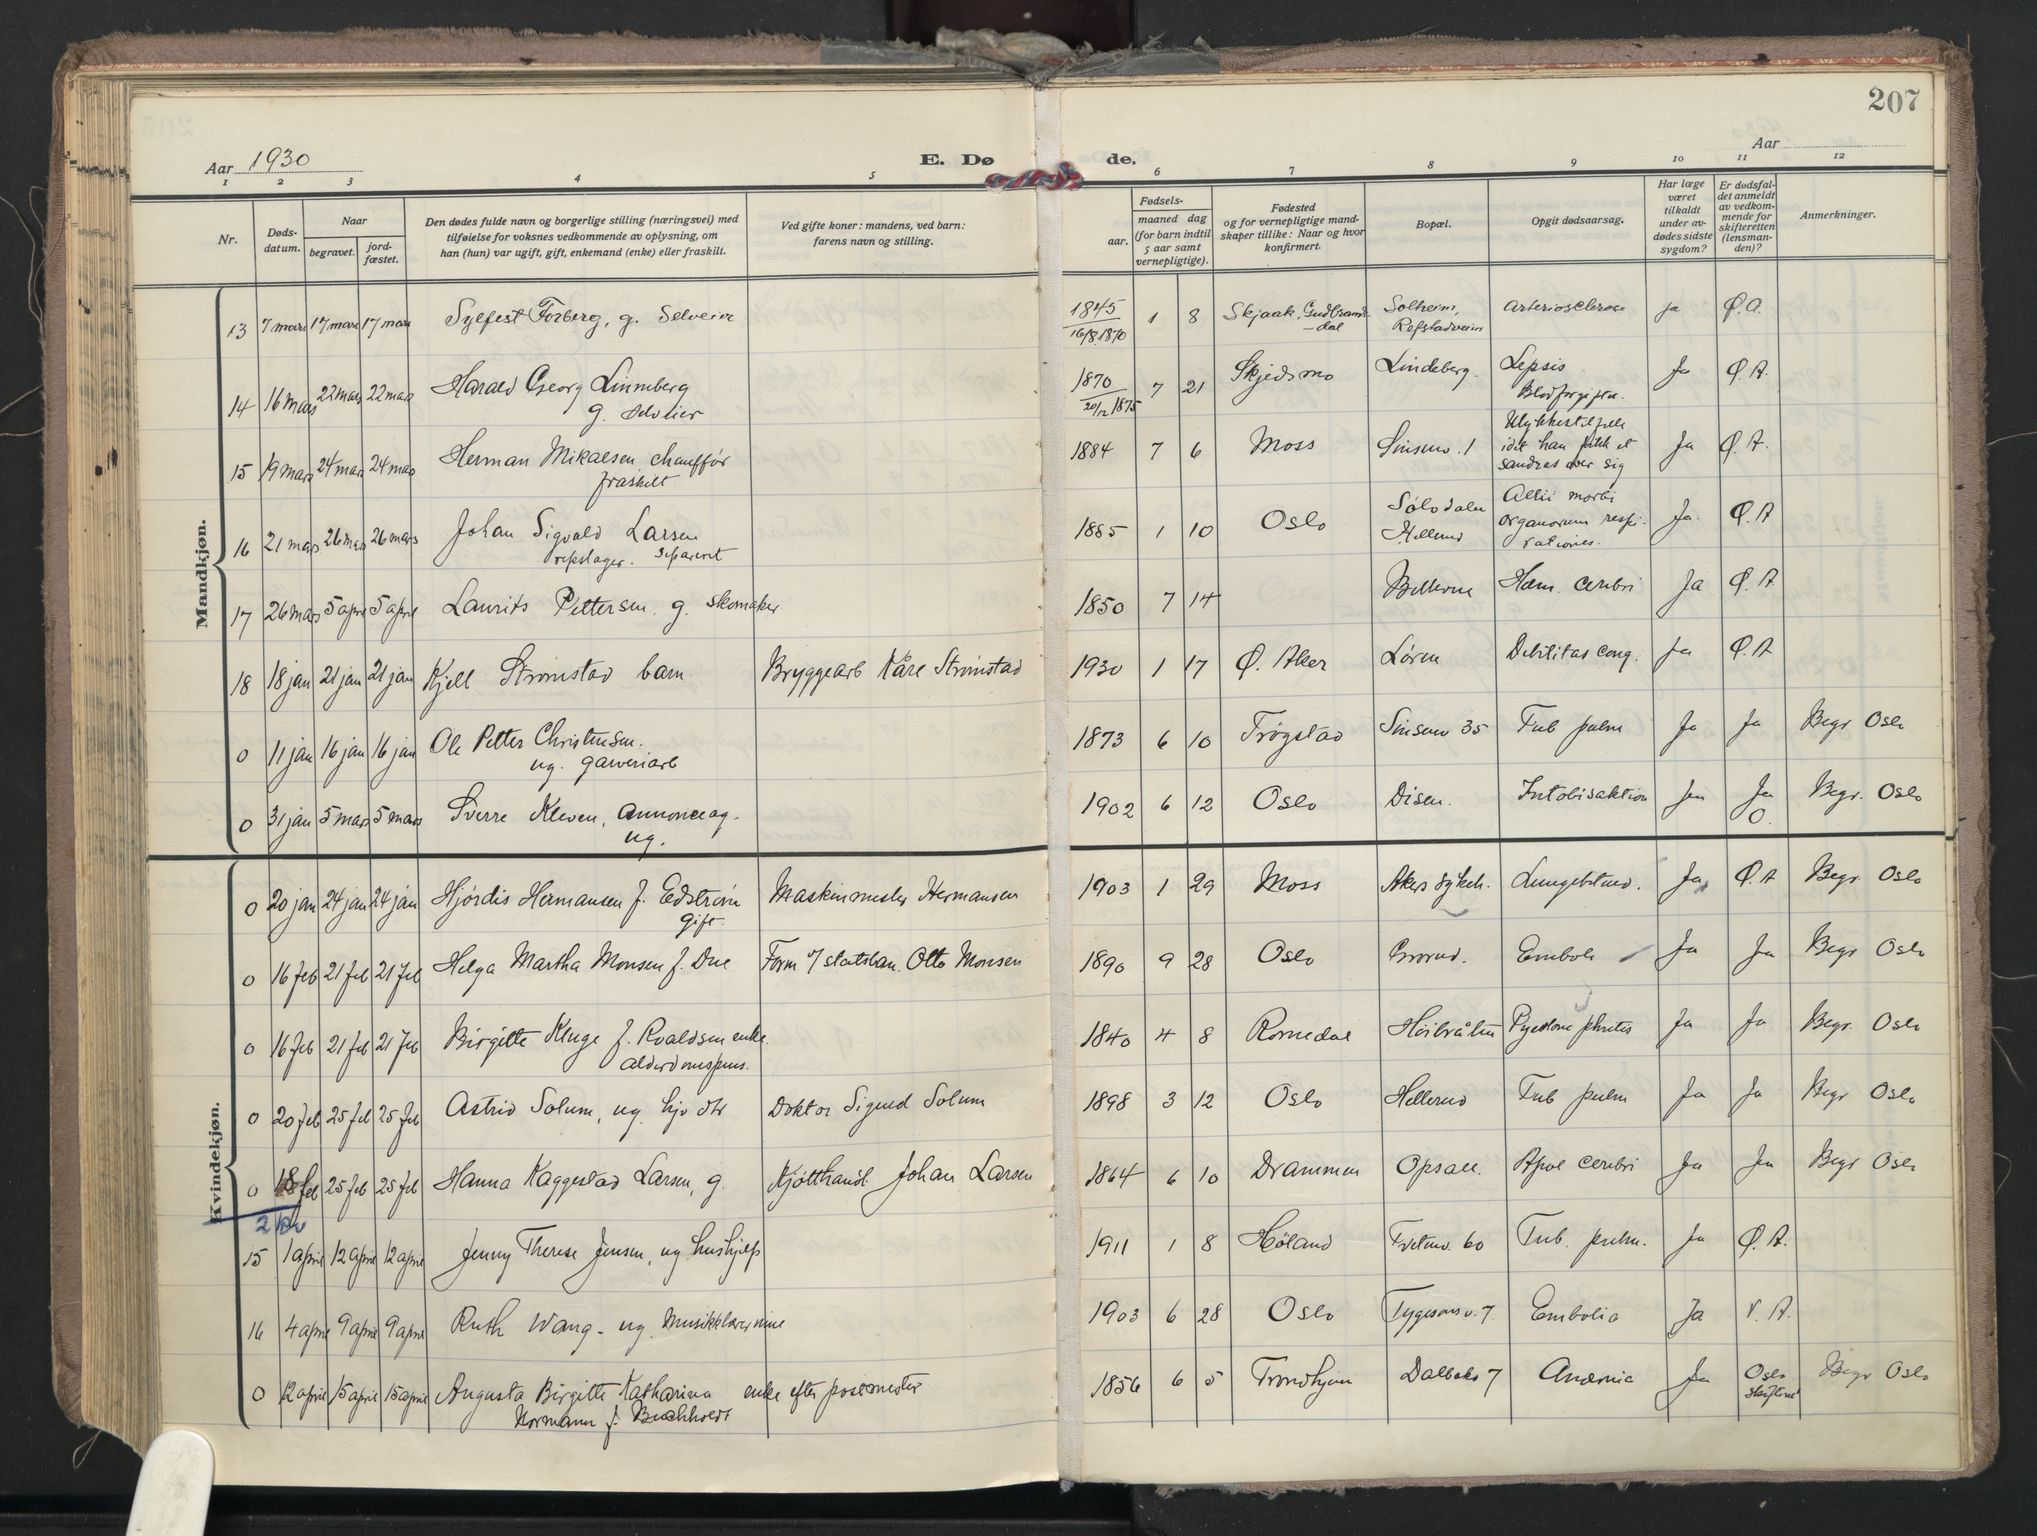 207
Aar 1930
E. Dø de.
Aar
1 2 3 4 5 6 7 8 9 10 11 12
Nr.
Døds-
datum.
Naar
begravet. jord-
fæstet.
Den dødes fulde navn og borgerlige stilling (næringsvei) med
tilføielse for voksnes vedkommende av oplysning, om
han (hun) var ugift, gift, enkemand (enke) eller fraskilt.
Ved gifte koner: mandens, ved barn:
farens navn og stilling.
Fødsels-
aar. maaned dag
(for barn indtil
5 aar samt
vernepligtige).
Fødested
og for vernepligtige mand-
skaper tillike: Naar og hvor
konfirmert.
Bopæl.
Opgit dødsaarsag.
Har læge
været
tilkaldt
under av-
dødes sidste
sygdom?
Er dødsfal-
det anmeldt
av vedkom-
mende for
skifteretten
(lensman-
den)?
Anmerkninger.
Mandkjøn.
13 7 mars 17 mars 17 mars Sylfest Forberg, g. Selveier 1845 1 8 Skjaak, Gudbrands Solheim, Arteriosclerose Ja Ø.A.
16/8 1870 -dal Refstadveien
14 16 mars 22 mars 22 mars Harald Georg Linneberg 1870 7 21 Skjedsmo Lindeberg. Lepsis Ja Ø.A.
g. selveier 20/12 1875 Blodforgiftn.
15 19 mars 24 mars 24 mars Herman Mikaelsen, chauffør 1884 7 6 Moss Sinsenv. 1 Ulykkestilfelle Ja Ø.A.
fraskilt idet han fikk et
sandras over sig
16 21 mars 26 mars 26 mars Johan Sigvald Larsen 1885 1 10 Oslo Hellerud Allii morbi Ja. Ø.A
repslager. separert organorum respi-
rationis.
17 26 mars 5 april 5 april Laurits Pettersen, g. skomaker 1850 7 14 Hæm. cerebri Ja Ø.A
18 18 jan 21 jan 21 jan Kjell Strømstad barn Bryggearb Kåre Strømstad 1930 1 17 Ø. Aker Løren Debilitas cong. Ja Ø.A
0 11 jan 16 jan 16 jan Ole Petter Christensen. 1873 6 10 Trøgstad Sinsenv 35 Tub pulm Ja Ja Begr Oslo
ug. garveriarb
0 31 jan 5 mars 5 mars Sverre Kleven, annonceag. 1902 6 12 Oslo Disen. Intoksikation Ja Ja Begr. Oslo
ug. O.
Kvindekjøn.
0 20 jan 24 jan 24 jan Hjørdis Hermansen f. Edstrøm Maskinmester Hermansen 1903 1 29 Moss Akers sykeh. Lungebetend. Ja Ø.A Begr. Oslo
gift.
0 16 feb 21 feb 21 feb Helga Martha Monsen f. Due Form v/ statsban. Otto Monsen 1890 9 28 Oslo Grorud. Emboli Ja Ja Begr Oslo
0 16 feb 21 feb 21 feb Birgitte Kluge f. Roaldsen enke. 1840 4 8 Romedal Høibråten Ja Ja Begr. Oslo
alderdomspens.
0 20 feb 25 feb 25 feb Astrid Solum, ug. hjv dtr Doktor Sigurd Solum 1898 3 12 Oslo Hellerud Tub pulm Ja Ja Begr Oslo
0 18 feb 25 feb 25 feb Hanna Kaggestad Larsen, g. Kjøtthandl. Johan Larsen 1864 6 10 Drammen Opsall. Apol cerebri Ja Ja Begr Oslo
15 1 april 12 april 12 april Jenny Therese Jensen, ug. hushjelp 1911 1 8 Høland Tvetenv. 60 Tub. pulm. Ja Ø.A.
16 4 april 9 april 9 april Ruth Wang - ug. Musikklærerinne 1903 6 28 Oslo Tygesonsv. 7 Embolia Ja V.A.
0 12 april 15 april 15 april Augusta Birgitte Katharina enke efter postmester 1856 6 5 Trondhjem Dalbakv 7 Anæmie Ja Oslo Begr Oslo
Normann f. Buchholdt skifteret